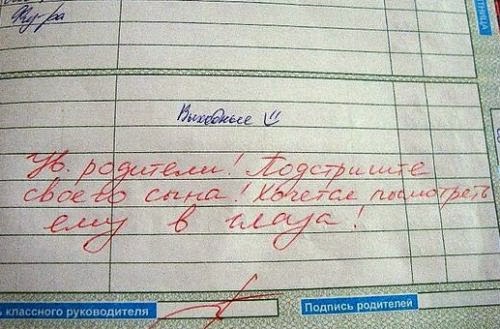 Физ-ра
ПЯТНИЦА
Выходные
Ув. родители! Подстригите
своего сына! Хочется посмотреть
ему в глаза!
классного руководителя
Подпись родителей